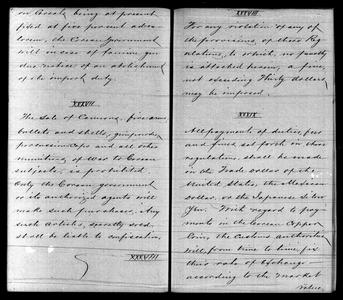 on Cereals, being at present
fixed at five per cent ad va-
lorem, the Corean Government
will in case of famine give
due notice of an abolishment
of its import duty.
XXXVII.
The Sale of Cannons, fire arms,
bullets and shells, gunpowder,
percussion caps and all other
munitions of War to Corean
subjects, is prohibited.
Only the Corean government
or its authorized agents will
make such purchases. Any
such articles, secretly sold,
shall be liable to confiscation.
XXXVIII
XXXVIII.
For any violation of any of
the provisions of these Reg-
ulations, to which no penalty
is attached herein, a fine,
not exceeding Thirty dollars,
may be imposed.
XXXIX
All payments of duties, fees
and fines, set forth in these
regulations, shall be made
in the Trade dollar of the
United States, the Mexican
dollar, or the Japanese Silver
Yen. With regard to pay-
ments in Corean Copper
Coin, the Customs authorities
will, from time to time, fix
their rate of Exchange
according to the market
value.